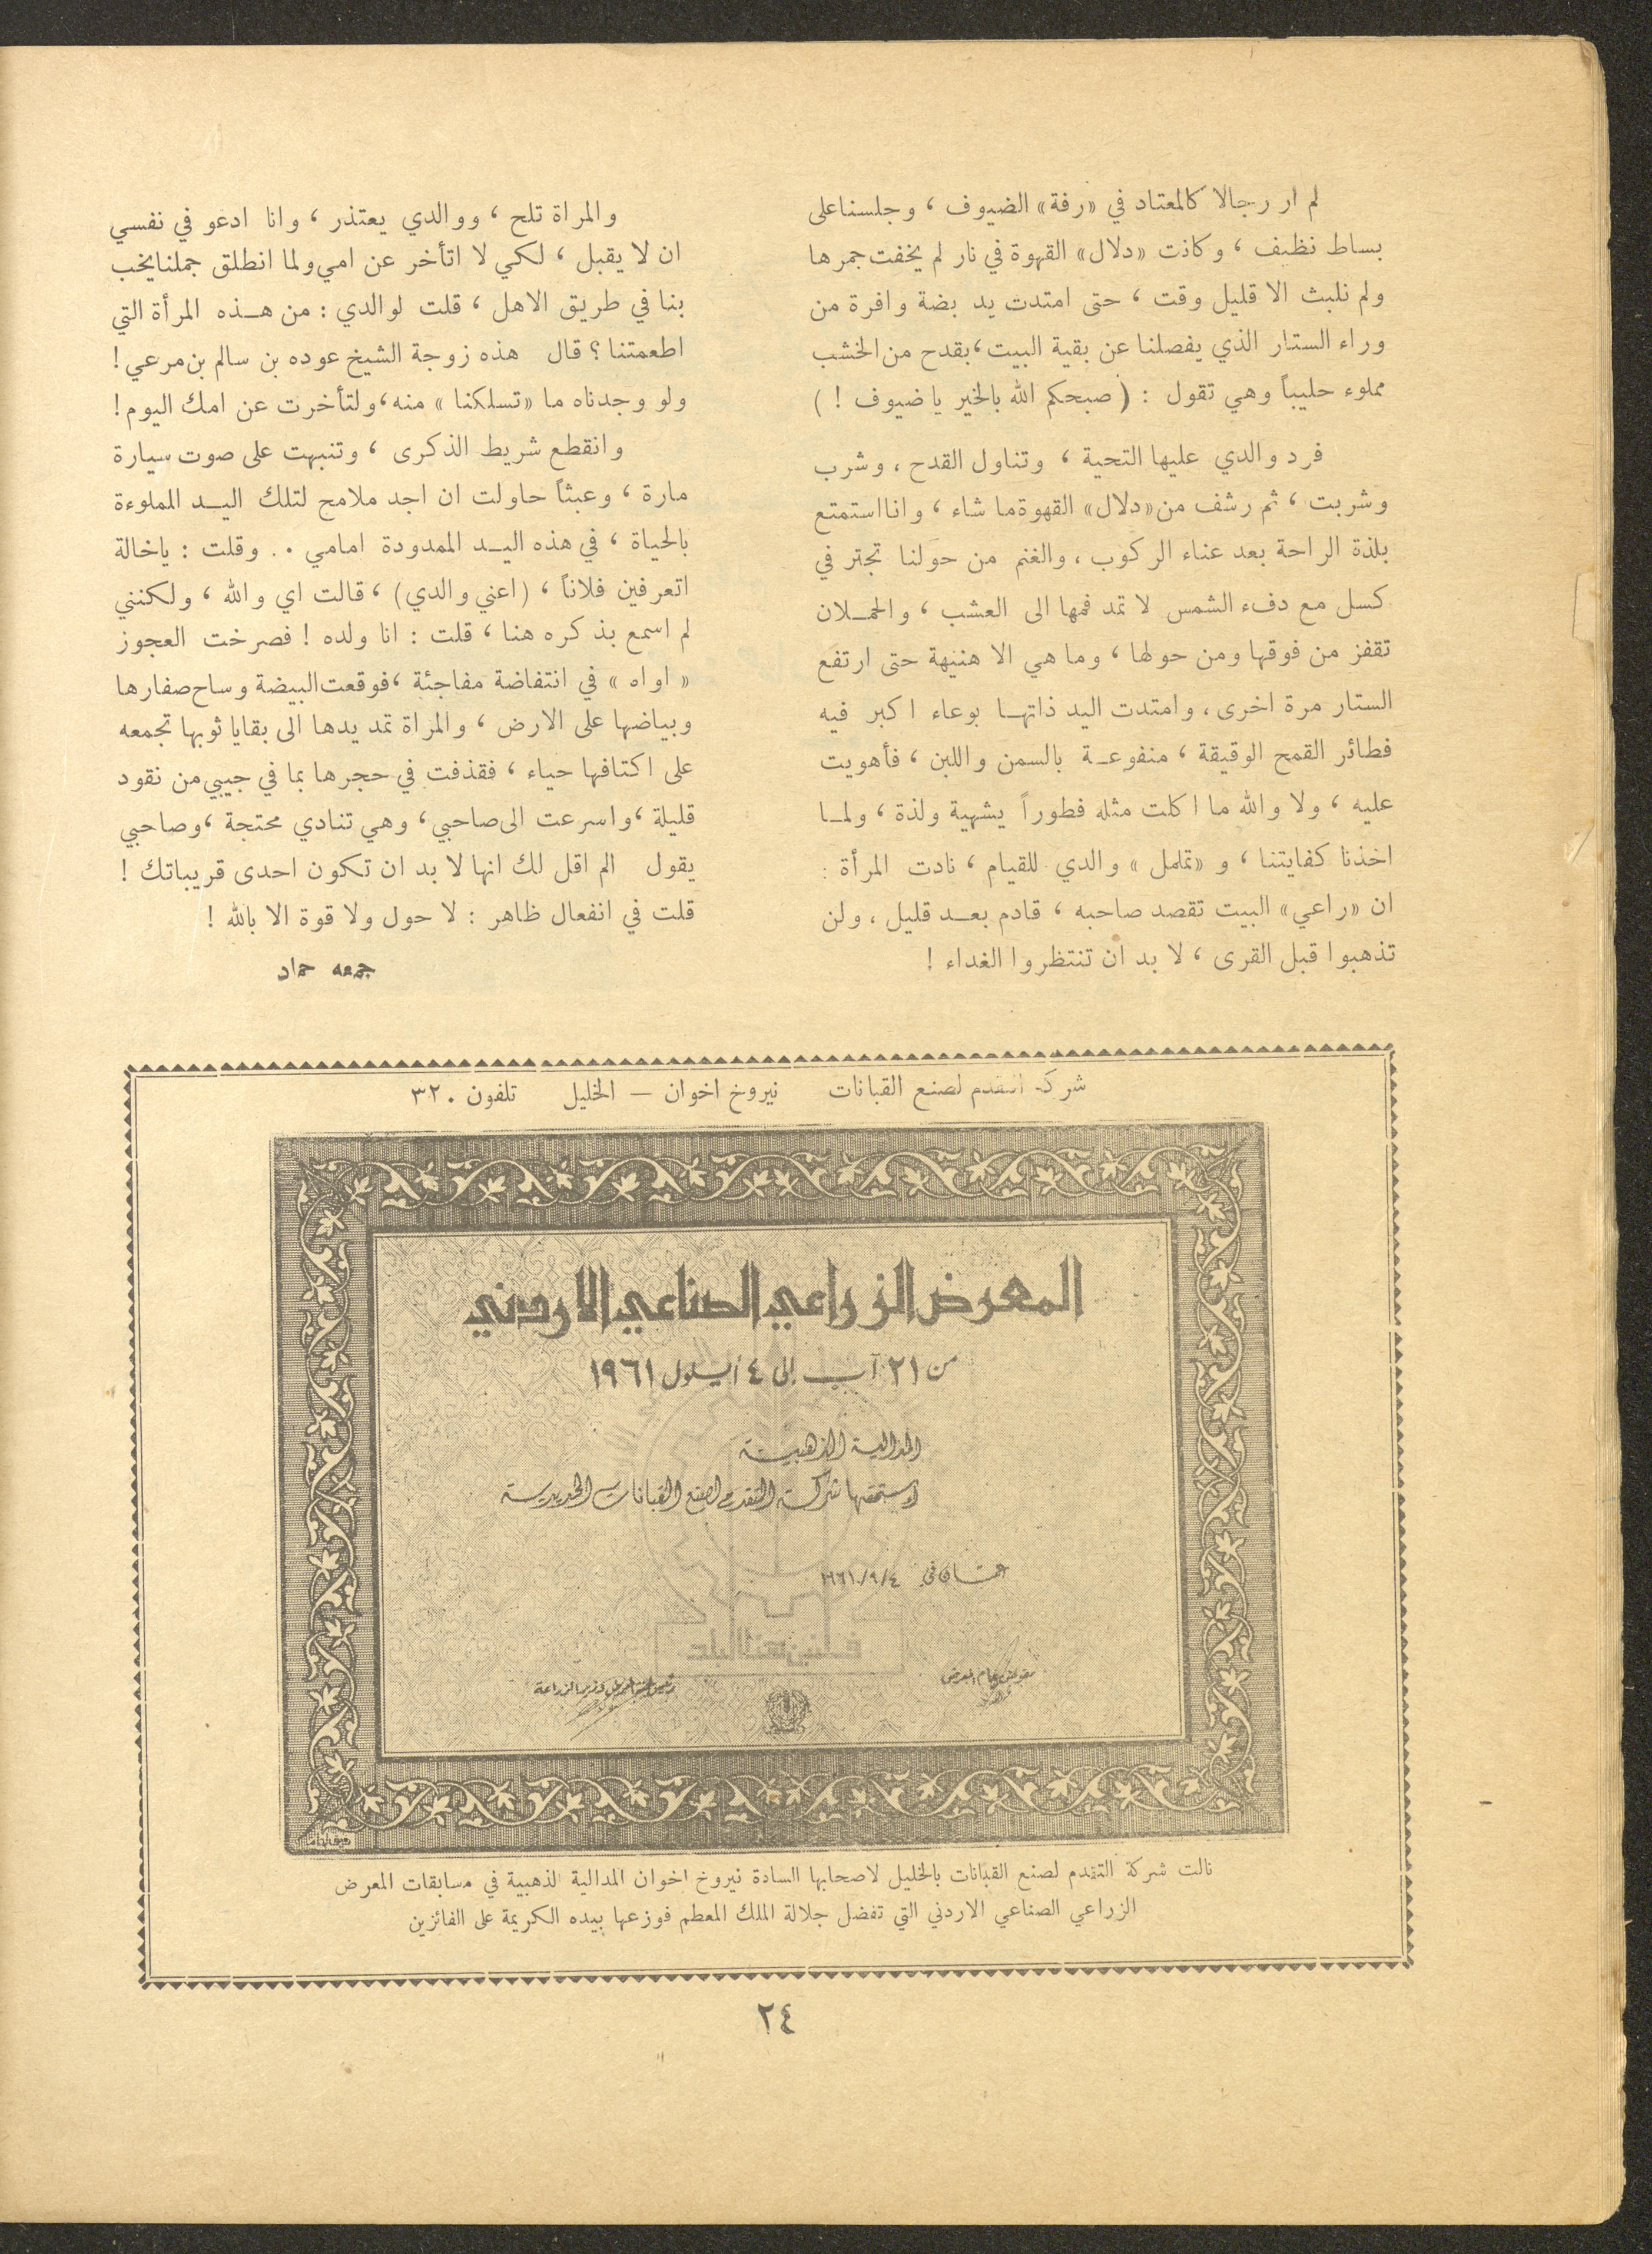 لم ار رجالا كالمعتاد في «رفة» الضيوف ، وجلسنا على
بساط نظيف ، وكانت «دلال» القهوة في نار لم يخفت جمرها
ولم نلبث الا قليل وقت ، حتى امتدت يد بضة وافرة من
وراء الستار الذي يفصلنا عن بقية البيت ، بقدح من الخشب
مملوء حليباً وهي تقول : ( صبحكم الله بالخير يا ضيوف ! )
فرد والدي عليها التحية ، وتناول القدح ، وشرب
وشربت ، ثم رشف من «دلال» القهوة ما شاء ، وانا استمتع
بلذة الراحة بعد عناء الركوب ، والغنم من حولنا تجتر في
كسل مع دفء الشمس لا تمد فمها الى العشب ، والحملان
تقفز من فوقها ومن حولها ، وما هي الا هنيهة حتى ارتفع
الستار مرة اخرى ، وامتدت اليد ذاتها بوعاء اكبر فيه
فطائر القمح الوقيقة ، منقوعة بالسمن واللبن ، فأهويت
عليه ، ولا والله ما اكلت مثله فطوراً يشهية ولذة ، ولما
اخذنا كفايتنا ، و «تململ» والدي للقيام ، نادت المرأة :
ان «راعي» البيت تقصد صاحبه ، قادم بعد قليل ، ولن
تذهبوا قبل القرى ، لا بد ان تنتظروا الغداء !
والمراة تلح ، ووالدي يعتذر ، وانا ادعو في نفسي
ان لا يقبل ، لكي لا اتأخر عن امي ولما انطلق جملنا يخب
بنا في طريق الاهل ، قلت لوالدي : من هذه المرأة التي
اطعمتنا ؟ قال هذه زوجة الشيخ عوده بن سالم بن مرعي !
ولو وجدناه ما «تسلكنا» منه ، ولتأخرت عن امك اليوم !
وانقطع شريط الذكرى ، وتنبهت على صوت سيارة
مارة ، وعبثاً حاولت ان اجد ملامح لتلك اليد المملوءة
بالحياة ، في هذه اليد الممدودة امامي .. وقلت : ياخالة
اتعرفين فلاناً ، (اعني والدي) ، قالت اي والله ، ولكنني
لم اسمع بذكره هنا ، قلت : انا ولده ! فصرخت العجوز
« اواه » في انتفاضة مفاجئة ، فوقعت البيضة وساح صفارها
وبياضها على الارض ، والمراة تمد يدها الى بقايا ثوبها تجمعه
على اكتافها حياء ، فقذفت في حجرها بما في جيبي من نقود
قليلة ، واسرعت الى صاحبي ، وهي تنادي محتجة ، وصاحبي
يقول الم اقل لك انها لا بد ان تكون احدى قريباتك !
قلت في انفعال ظاهر : لا حول ولا قوة الا بالله !
جمعه حماد
شركة التقدم لصنع القبانات نيروخ اخوان – الخليل تلفون ٣٢٠
المعرض الزراعي الصناعي الاردني
من ٢١ آب الى ٤ أيلول ١٩٦١
المدالية الذهبية
استحقتها شركة التقدم لصنع القبانات الحديدية
عمان في ٤/٩/١٩٦١
مفوض عام المعرض
نالت شركة التقدم لصنع القبانات بالخليل لاصحابها السادة نيروخ اخوان المدالية الذهبية في مسابقات المعرض
الزراعي الصناعي الاردني التي تفضل جلالة الملك المعظم فوزعها بيده الكريمة على الفائزين
٢٤